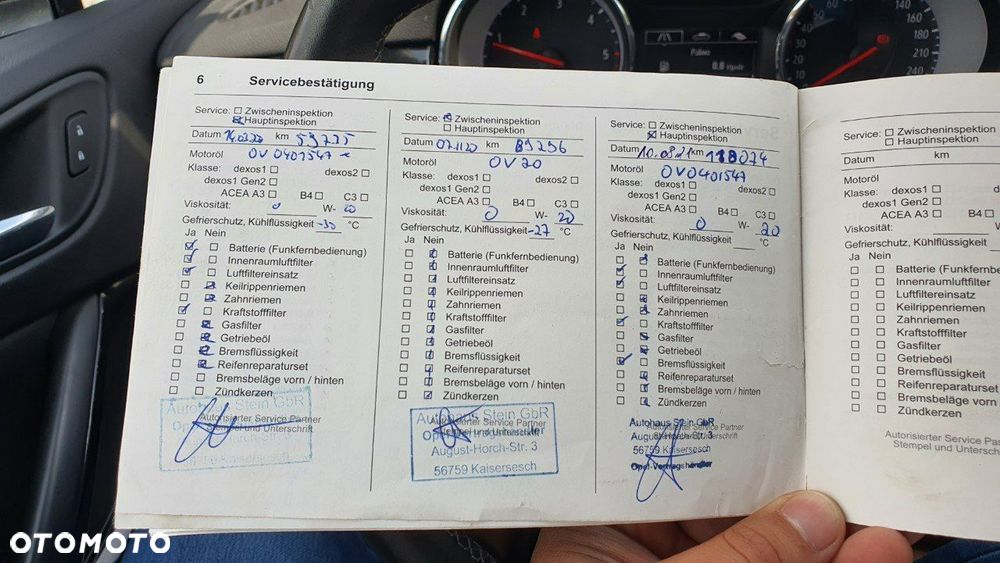 6 Servicebestätigung
Service: Zwischeninspektion
Hauptinspektion
Datum 14.02.20 km 59775
Motoröl OV0401547
Klasse: dexos1 dexos2
dexos1 Gen2
ACEA A3 B4 C3
Viskosität: 0 W- 20
Gefrierschutz, Kühlflüssigkeit -30 °C
Ja Nein
Batterie (Funkfernbedienung)
Innenraumluftfilter
Luftfiltereinsatz
Keilrippenriemen
Zahnriemen
Kraftstofffilter
Gasfilter
Getriebeöl
Bremsflüssigkeit
Reifenreparaturset
Bremsbeläge vorn / hinten
Zündkerzen
Autohaus Stein GbR
Autorisierter Service Partner
Stempel und Unterschrift
Service: Zwischeninspektion
Hauptinspektion
Datum 02.11.20 km 89256
Motoröl OV20
Klasse: dexos1 dexos2
dexos1 Gen2
ACEA A3 B4 C3
Viskosität: 0 W- 20
Gefrierschutz, Kühlflüssigkeit -27 °C
Ja Nein
Batterie (Funkfernbedienung)
Innenraumluftfilter
Luftfiltereinsatz
Keilrippenriemen
Zahnriemen
Kraftstofffilter
Gasfilter
Getriebeöl
Bremsflüssigkeit
Reifenreparaturset
Bremsbeläge vorn / hinten
Zündkerzen
Autohaus Stein GbR
Autorisierter Service Partner
August-Horch-Str. 3
56759 Kaisersesch
Service: Zwischeninspektion
Hauptinspektion
Datum 10.08.21 km 118074
Motoröl OV0401547
Klasse: dexos1 dexos2
dexos1 Gen2
ACEA A3 B4 C3
Viskosität: 0 W- 20
Gefrierschutz, Kühlflüssigkeit °C
Ja Nein
Batterie (Funkfernbedienung)
Innenraumluftfilter
Luftfiltereinsatz
Keilrippenriemen
Zahnriemen
Kraftstofffilter
Gasfilter
Getriebeöl
Bremsflüssigkeit
Reifenreparaturset
Bremsbeläge vorn / hinten
Zündkerzen
Autohaus Stein GbR
Autorisierter Service Partner
August-Horch-Str. 3
56759 Kaisersesch
Opel-Vertragshändler
Service: Zwischeninspektion
Hauptinspektion
Datum km
Motoröl
Klasse: dexos1
dexos1 Gen2
ACEA A3 B4
Viskosität:
Gefrierschutz, Kühlflüssigkeit
Ja Nein
Batterie (Funkfernbedienung
Innenraumluftfilter
Luftfiltereinsatz
Keilrippenriemen
Zahnriemen
Kraftstofffilter
Gasfilter
Getriebeöl
Bremsflüssigkeit
Reifenreparaturset
Bremsbeläge vorn / hinten
Zündkerzen
Autorisierter Service Partn
Stempel und Unterschr
OTOMOTO